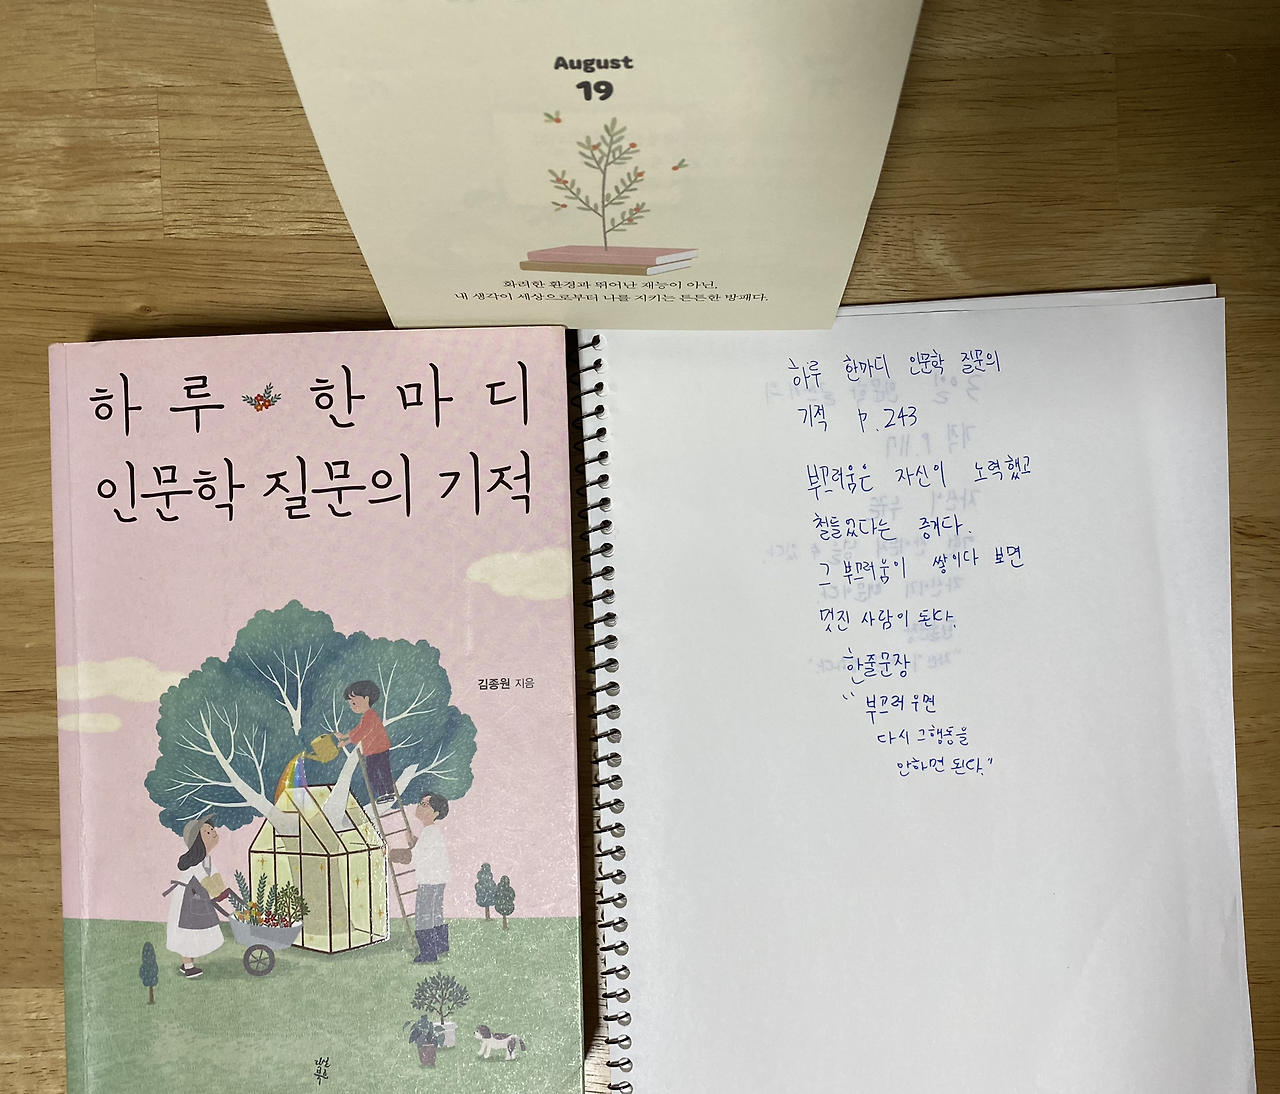 August
19
화려한 환경과 뛰어난 재능이 아닌,
내 생각이 세상으로부터 나를 지키는 든든한 방패다.
하루 한마디
인문학 질문의 기적
김종원 지음
다산
북스
하루 한마디 인문학 질문의
기적 p.243
부끄러움은 자신이 노력했고
철들었다는 증거다.
그 부끄러움이 쌓이다 보면
멋진 사람이 된다.
한줄문장
"부끄러우면
다시 그행동을
안하면 된다."